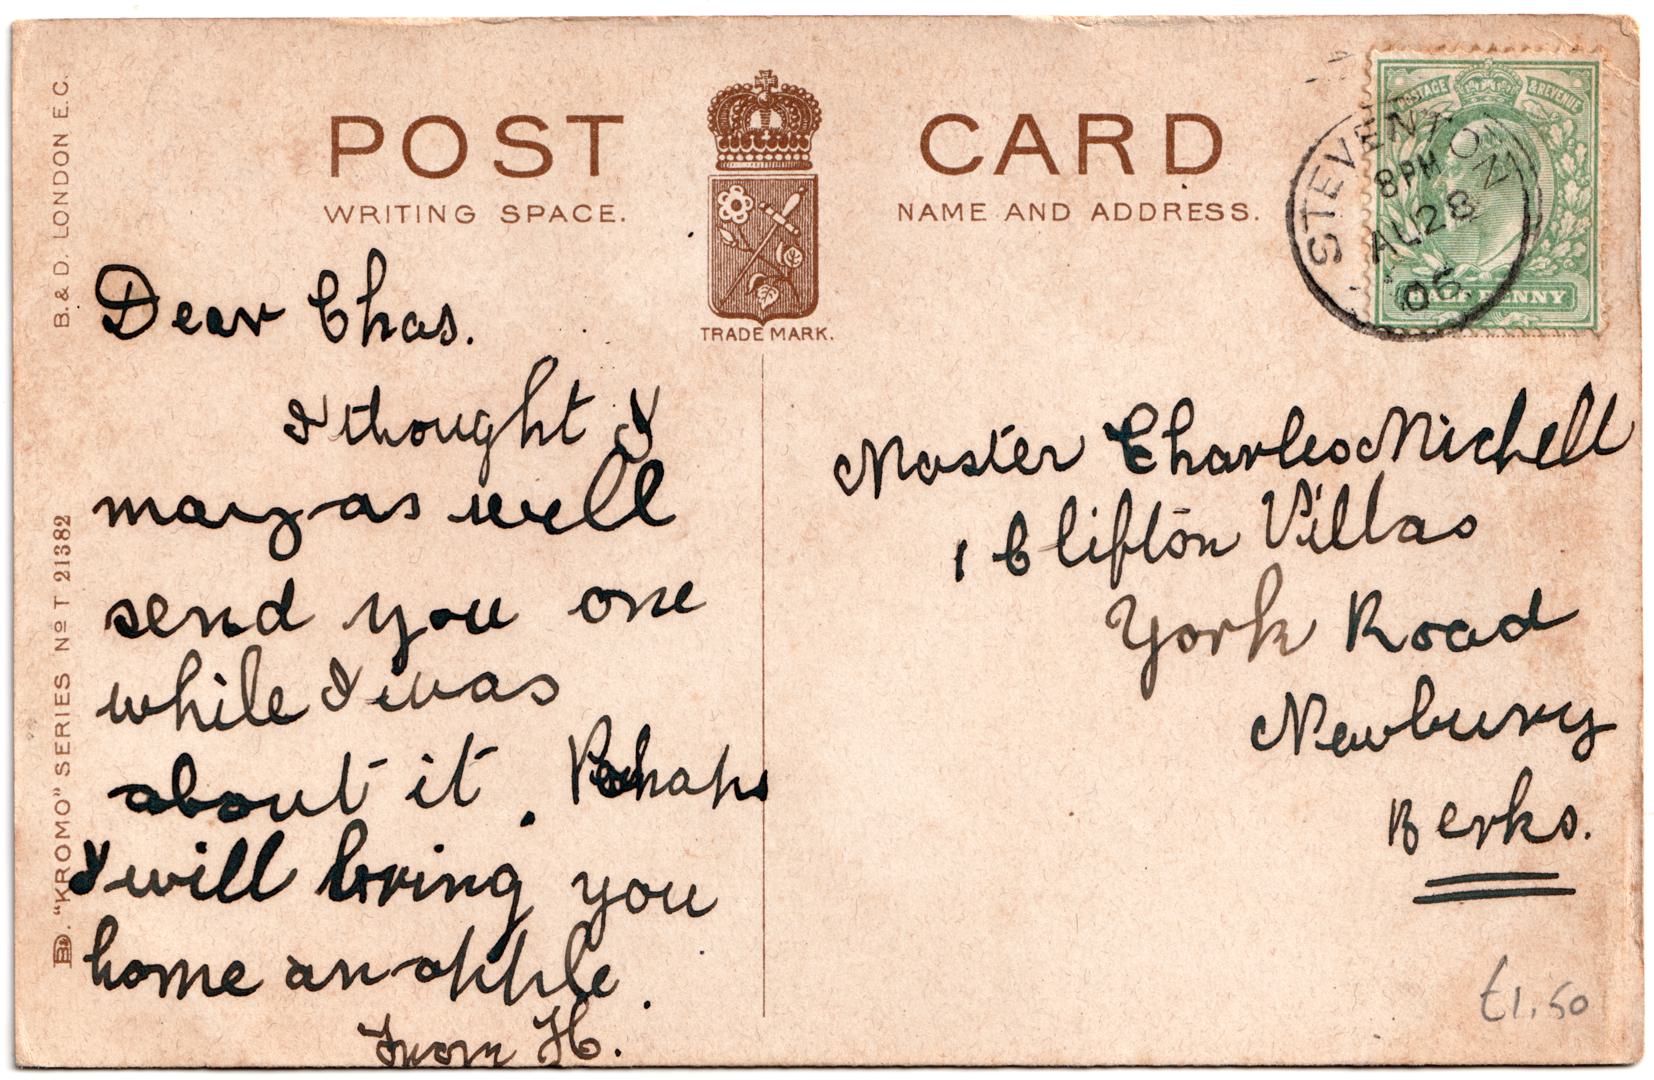 POST CARD
WRITING SPACE.
NAME AND ADDRESS.
TRADE MARK.
B. & D. LONDON E.C.
B&D. "KROMO" SERIES No T 21382
POSTAGE & REVENUE
HALF PENNY
STEVENTON
8 PM
AU 28
05
Dear Chas.
I thought I
may as well
send you one
while I was
about it. Perhaps
I will bring you
home an apple.
From H.
Master Charles Michell
1 Clifton Villas
York Road
Newbury
Berks.
£1.50